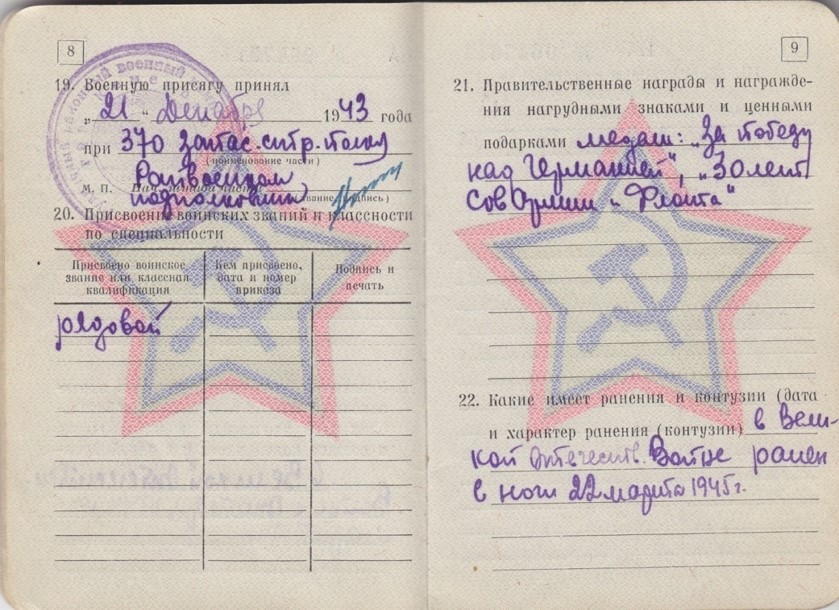 8
19. Военную присягу принял
„ 21 " Декабря 1943 года
при 370 запас. стр. полку
(наименование части)
Райвоенком
м. п.
подполковник
20. Присвоение воинских званий и классности
по специальности
Присвоено воинское
звание или классная
квалификация
Кем присвоено,
дата и номер
приказа
Подпись и
печать
рядовой
9
21. Правительственные награды и награжде-
ния нагрудными знаками и ценными
подарками медали: „За победу
над Германией", „30 лет
Сов Армии и Флота"
22. Какие имеет ранения и контузии (дата
и характер ранения (контузии) в Вели-
кой Отечеств. Войне ранен
в ноги 22 марта 1945 г.